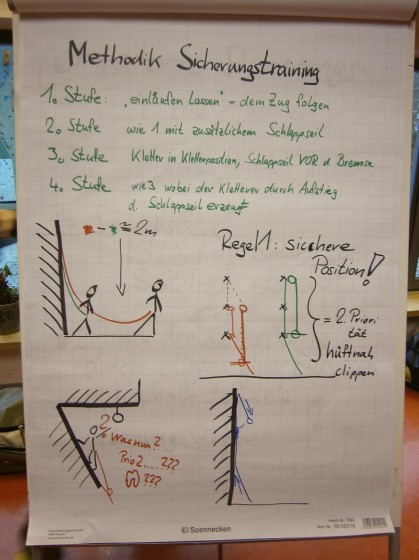 Methodik Sicherungstraining
1. Stufe: „einlaufen lassen" - dem Zug folgen
2. Stufe wie 1 mit zusätzlichem Schlappseil
3. Stufe Kletter in Kletterposition; Schlappseil VOR d. Bremse
4. Stufe wie 3 wobei der Kletterer durch Aufstieg
d. Schlappseil erzeugt
≈ 2m
Regel 1: sichere
Position!
= 2. Priori
tät
hüftnah
clippen
Was nun?
Prio 2.....???
???
Soennecken